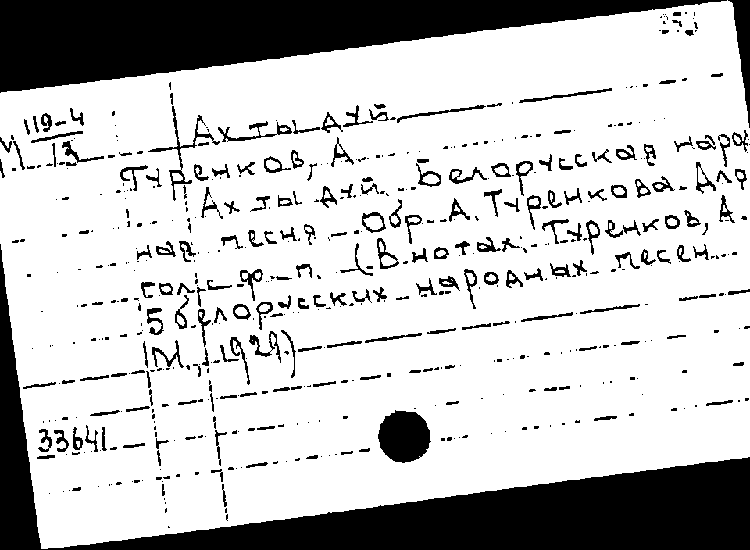 М 119-4
13
Ах ты дуй.
Туренков, А.
Ах ты дуй. Белорусская народ
ная песня. Обр. А. Туренкова. Для
голс ф.-п. (В нотах: Туренков, А.
5 белорусских народных песен.
М., 1929.)
33641